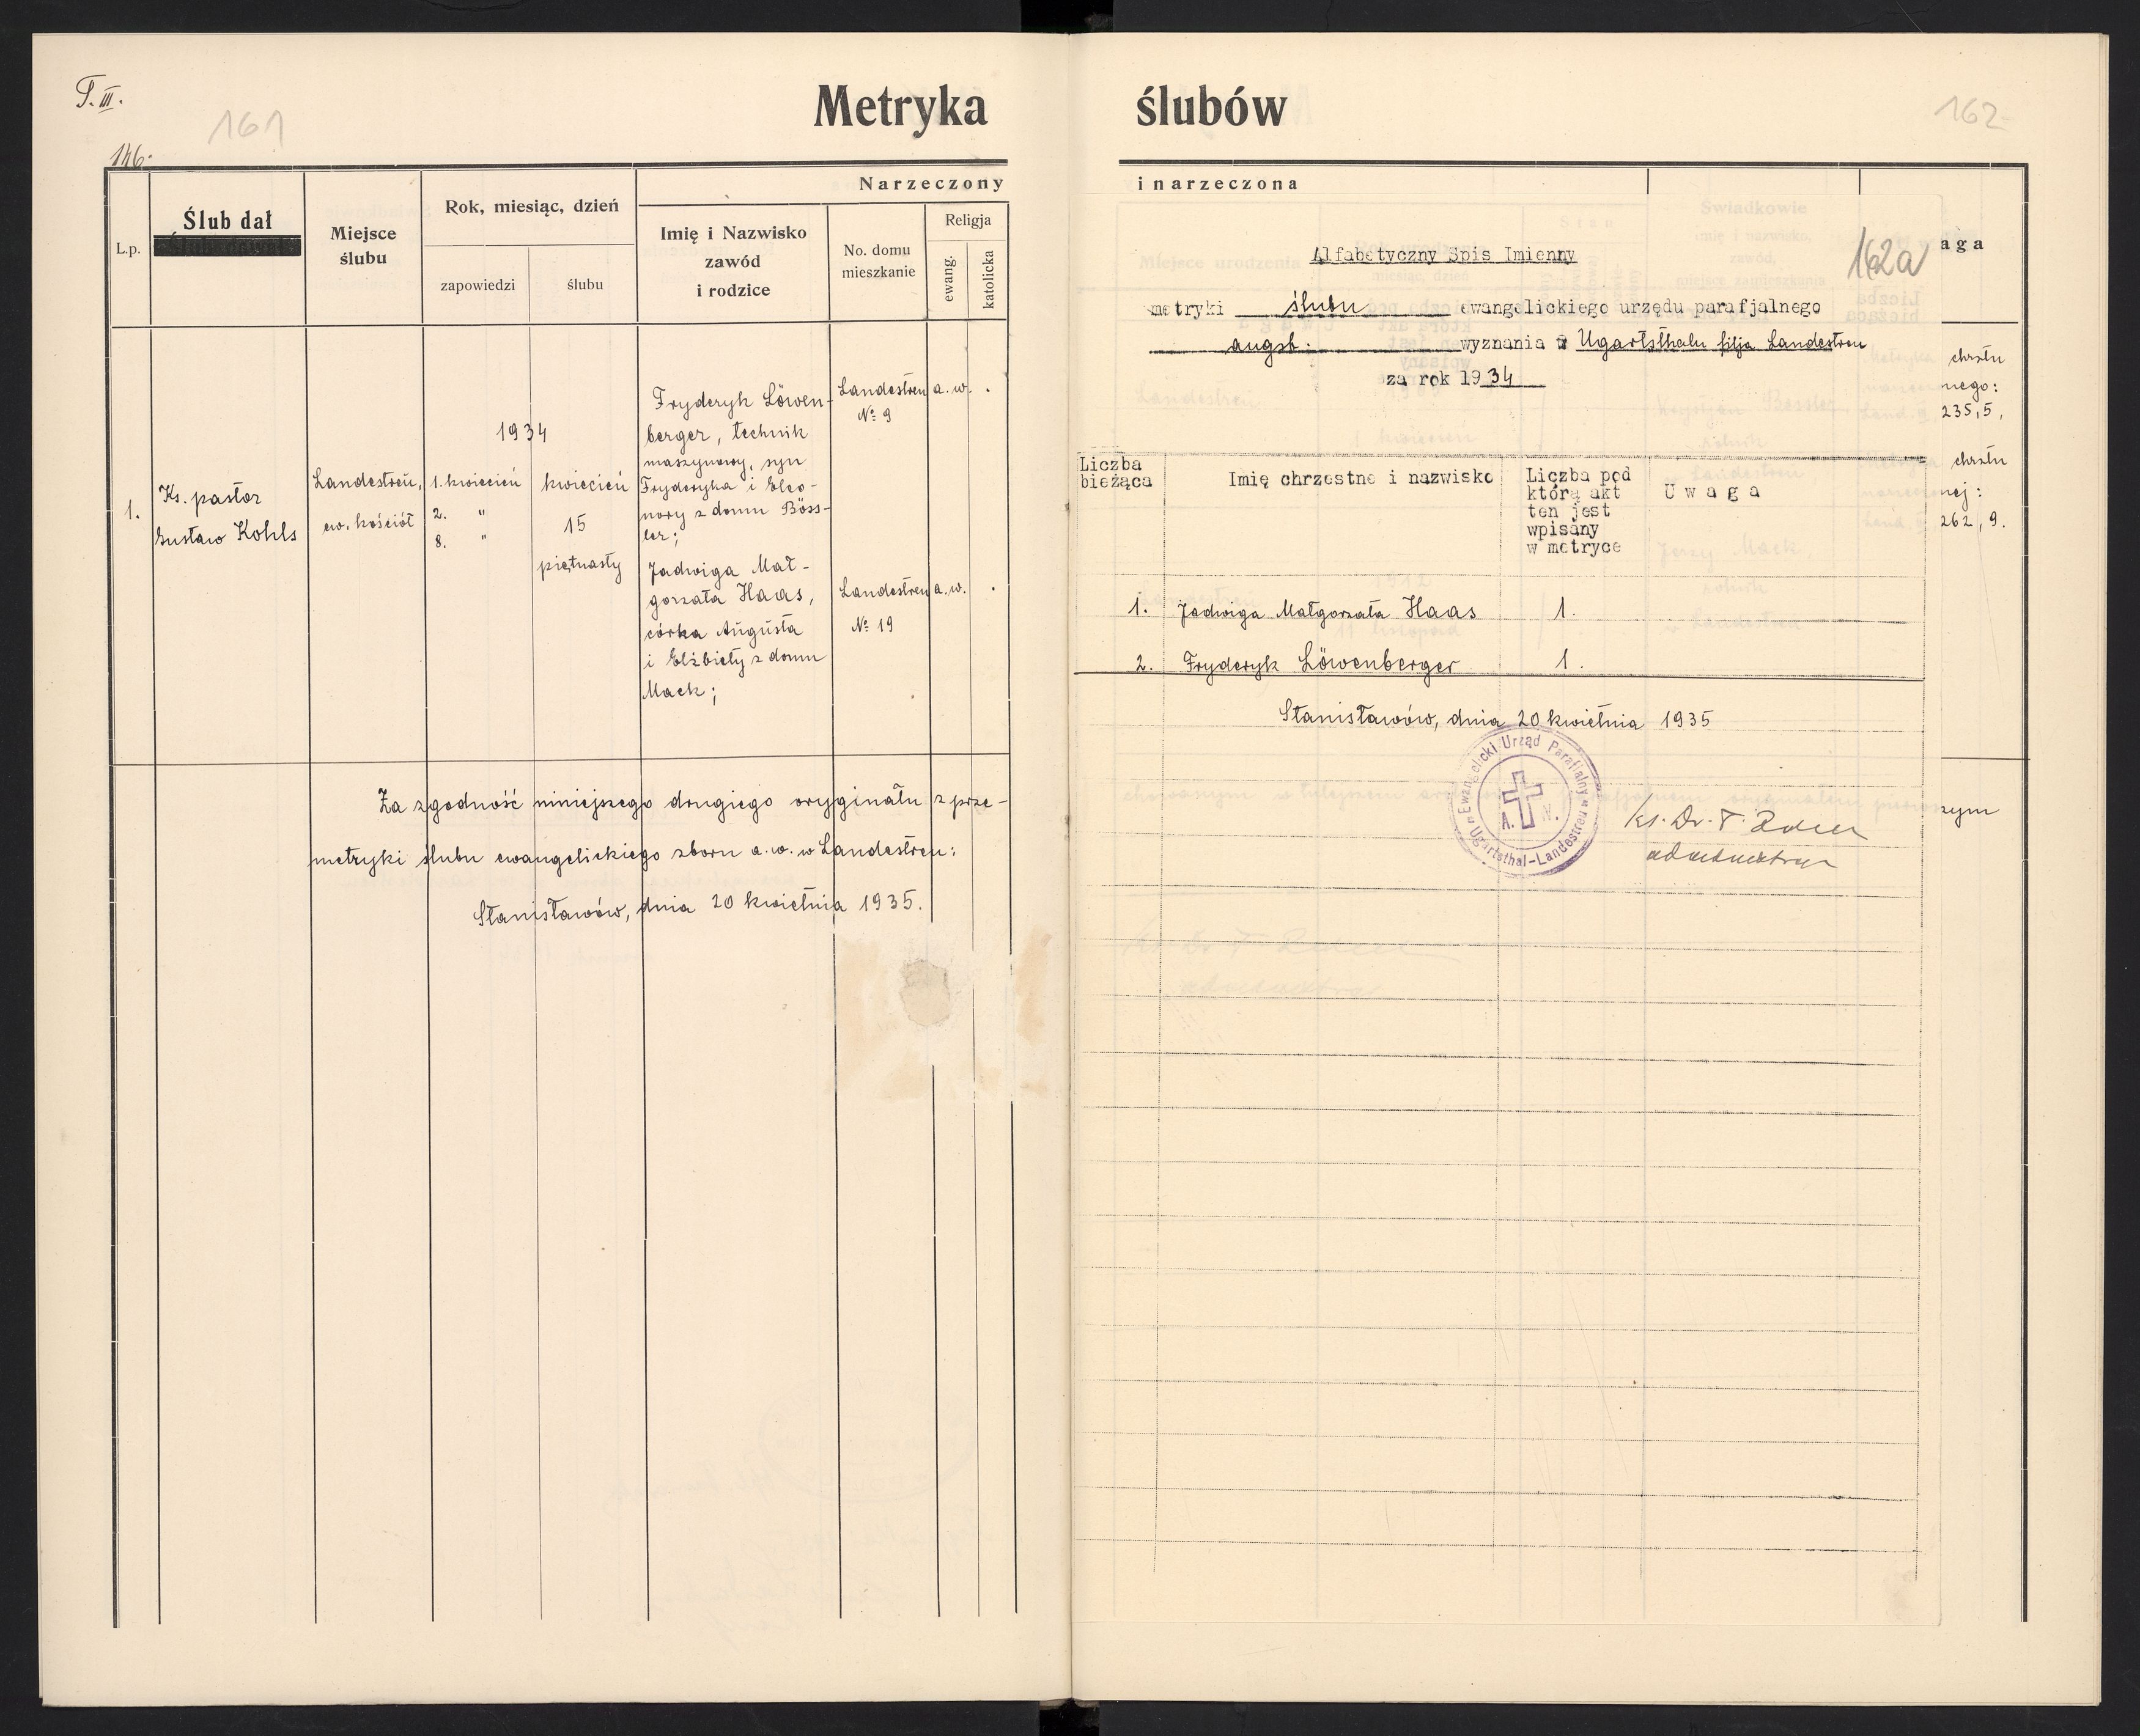 T. III.
161
146.
Metryka
Narzeczony
L.p.
Ślub dał
Miejsce
ślubu
Rok, miesiąc, dzień
zapowiedzi
ślubu
Imię i Nazwisko
zawód
i rodzice
No. domu
mieszkanie
Religja
ewang.
katolicka
1.
Ks. pastor
Gustaw Kohls
Landestreu,
ew. kościół
1934
1. kwiecień
2. "
8. "
kwiecień
15
piętnasty
Fryderyk Löwen-
berger, technik
maszynowy, syn
Fryderyka i Eleo-
nory z domu Böss-
ler;
Landestreu
№ 9
a. w.
Jadwiga Mał-
gorzata Haas,
córka Augusta
i Elżbiety z domu
Mack;
Landestreu
№ 19
a. w.
Za zgodność niniejszego drugiego oryginału z prze-
metryki ślubu ewangelickiego zboru a. w. w Landestreu:
Stanisławów, dnia 20 kwietnia 1935.
ślubów
162
i narzeczona
aga
162a
Alfabetyczny Spis Imienny
metryki ślubu ewangelickiego urzędu parafjalnego
augsb. wyznania w Ugartsthalu filja Landestreu
za rok 1934
chrztu
nego:
235, 5,
chrztu
nej:
262, 9.
zym
Liczba
bieżąca
Imię chrzestne i nazwisko
Liczba pod
którą akt
ten jest
wpisany
w metryce
Uwaga
1. Jadwiga Małgorzata Haas 1.
2. Fryderyk Löwenberger 1.
Stanisławów, dnia 20 kwietnia 1935
Ewangelicki Urząd Parafjalny w Ugartsthal-Landestreu
A. W.
ks. Dr. T.
administrator